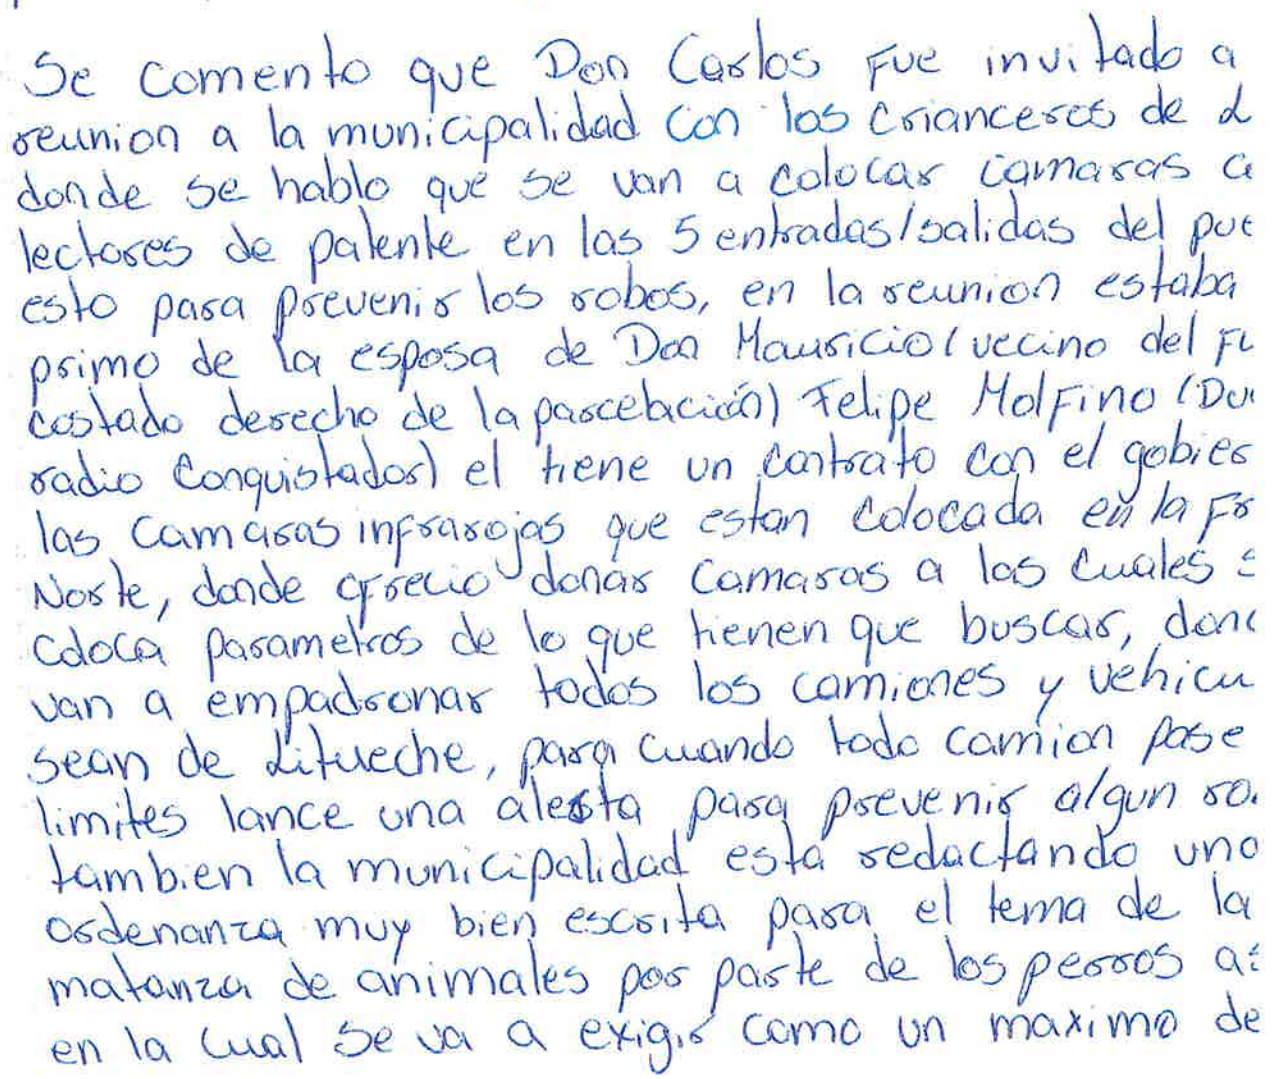 Se comento que Don Carlos fue invitado a
reunion a la municipalidad con los crianceros de
donde se hablo que se van a colocar camaras
lectores de patente en las 5 entradas/salidas del
esto para prevenir los robos, en la reunion estaba
primo de la esposa de Don Mauricio (vecino del
costado derecho de la parcelación) Felipe Molfino
radio Conquistador) el tiene un contrato con el
las camaras infrarojas que estan colocada en la
Norte, donde ofrecio donar camaras a las cuales
coloca parametros de lo que tienen que buscar,
van a empadronar todos los camiones y
sean de Litueche, para cuando todo camion pase
limites lance una alerta para prevenir algun
tambien la municipalidad esta redactando una
ordenanza muy bien escrita para el tema de la
matanza de animales por parte de los perros
en la cual se va a exigir como un maximo de